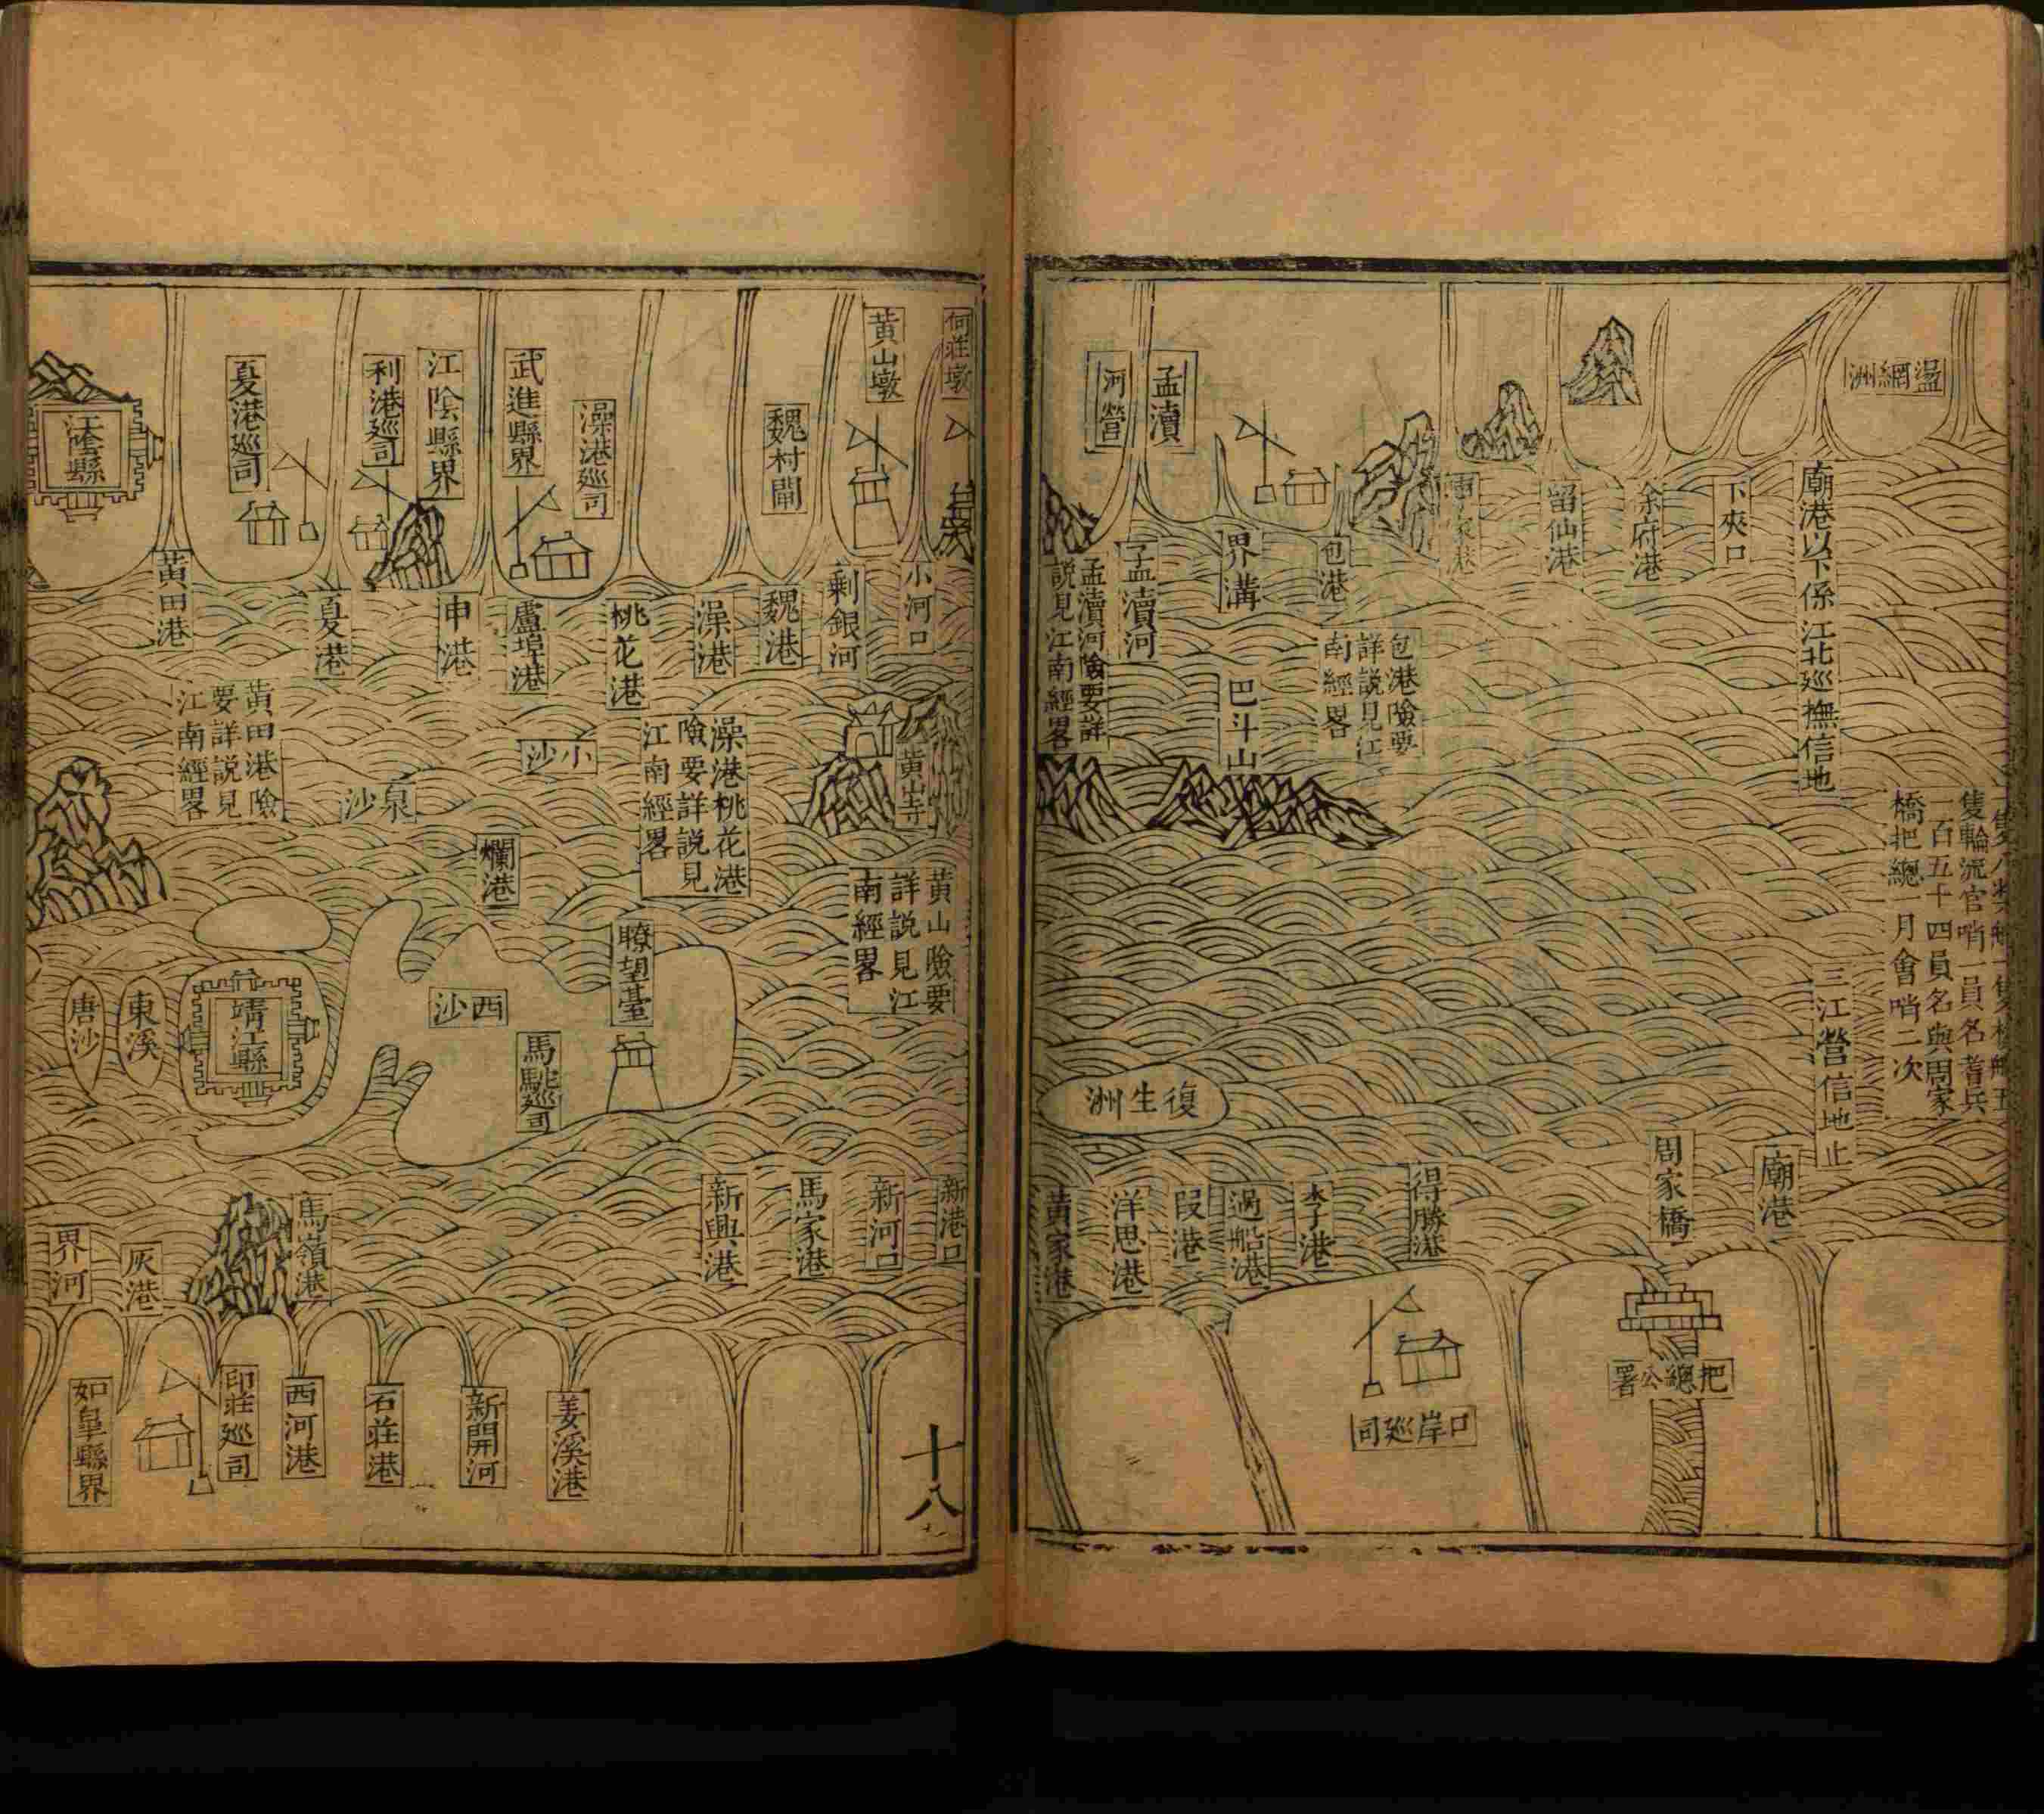 盪網洲
廟港以下係江北廵撫信地
下夾口
余府港
留仙港
包港
包港險要
詳說見江
南經畧
界溝
巴斗山
孟瀆
河營
孟瀆河
孟瀆河險要詳
說見江南經畧
隻輪流官哨一員名耆兵
一百五十四員名與周家
橋把總一月會哨二次
三江營信地止
廟港
周家橋
把總公署
得勝港
口岸廵司
過船港
段港
洋思港
黃家港
復生洲
何莊墩
黃山墩
小河口
剩銀河
魏村閘
魏港
澡港
澡港廵司
桃花港
武進縣界
盧埠港
江陰縣界
申港
利港廵司
夏港
夏港廵司
黃田港
江陰縣
黃山寺
黃山險要
詳說見江
南經畧
澡港桃花港
險要詳說見
江南經畧
小沙
爛港
黃田港險
要詳說見
江南經畧
瞭望臺
西沙
馬馱廵司
靖江縣
東溪
唐沙
新港口
新河口
馬家港
新興港
馬嶺港
灰港
界河
姜溪港
新開河
石莊港
西河港
印莊廵司
如皐縣界
十八